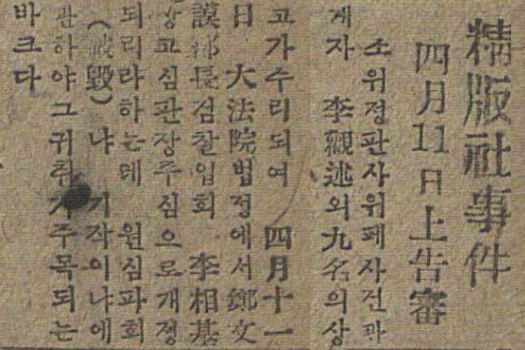 精版社事件
四月11日上告審
소위정판사위폐사건관
계자 李觀述외九名의상
고가수리되여 四月十一
日 大法院법정에서鄭文
謨部長검찰입회 李相基
상고심판장주심으로개정
되리라하는데 원심파회
(破毁)냐 기각이냐에
관하야그귀취가주목되는
바크다